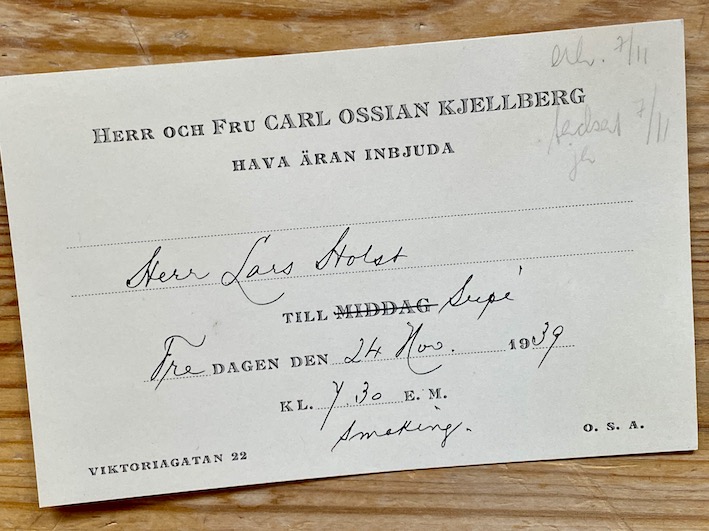 erh. 7/11
HERR OCH FRU CARL OSSIAN KJELLBERG
HAVA ÄRAN INBJUDA
7/11
Herr Lars Holst
TILL MIDDAG Supé
Fre DAGEN DEN 24 Nov. 1939
KL. 7.30 E. M.
Smoking.
O. S. A.
VIKTORIAGATAN 22